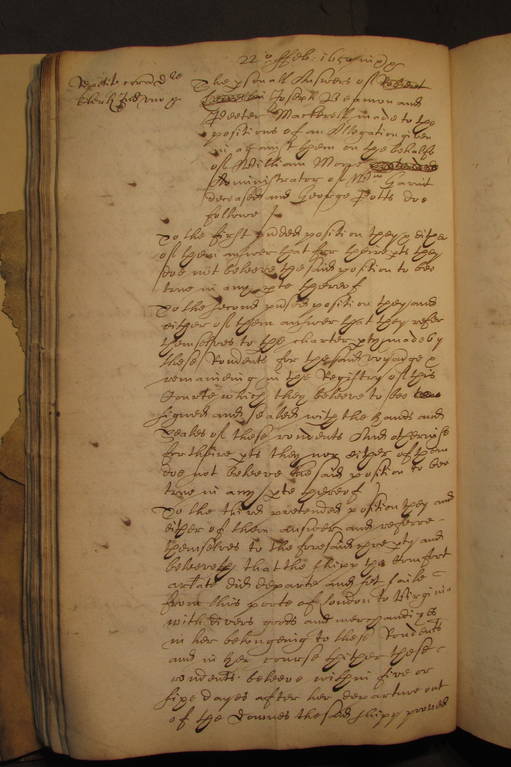 22o ffeb: 1654
The psonall Answers of Robert
Joseph Beamon and
Peeter Mackerell made to the
positions of an Allegation given
in against them on the behalfe
of William More
Administrator of Wm
deceased and George Potts doe
followe
To the first pnded position they & either
of them answer that for their pts they
doe not beleeve the said position to bee
true in any pte thereof
To the second pnded position they and
either of them answer that they refer
themselves to the charter pty made by
these Rondents for the said voyage &
remaineing in the Registry of this
Courte which they beleeve to bee
signed and sealed with the hands and
seales of these rondents And otherwise
for theire pts they nor either of them
doe not beleeve the said position to bee
true in any pte thereof
To the third pretended position they and
either of them answer and referre
themselves to the foresaid pty and
beleeveth that the shipp the Comfort
arlate did departe and set saile
from this porte of London to Virginia
with divers goods and merchandizes
in her belonging to these Rondents
and in her course thither these
rondents beleeve within five or
sixe dayes after her departure out
of the Downes the said shipp proved